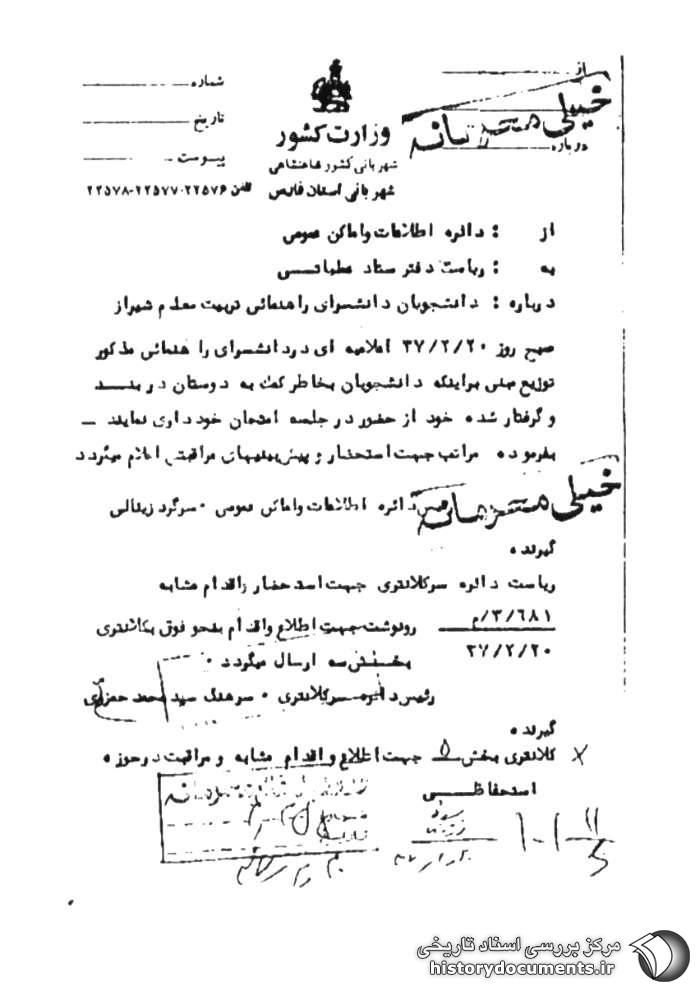 از
شماره
خیلی محرمانه
تاریخ
وزارت کشور
درباره
پیوست
شهربانی کشور شاهنشاهی
شهربانی استان فارس
تلفن ۲۲۵۷۶-۲۲۵۷۷-۲۲۵۷۸
از : دائره اطلاعات و اماکن عمومی
به : ریاست دفتر ستاد عملیاتی
درباره : دانشجویان دانشسرای راهنمائی تربیت معلم شیراز
صبح روز ۳۷/۲/۲۰ اعلامیه ای در دانشسرای راهنمائی مذکور
توزیع مبنی براینکه دانشجویان بخاطر کمک به دوستان در بند
و گرفتار شده خود از حضور در جلسه امتحان خودداری نمایند –
بفرموده مراتب جهت استحضار و پیش‌بینیهای مراقبتی اعلام میگردد
خیلی محرمانه
دائره اطلاعات و اماکن عمومی ۰ سرگرد زینالی
گیرنده
ریاست دائره سرکلانتری جهت استحضار و اقدام مشابه
۳/۶۸۱/م
۳۷/۲/۲۰
رونوشت جهت اطلاع و اقدام بنحو فوق بکلانتری
بخش سه ارسال میگردد ۰
رئیس دائره سرکلانتری ۰ سرهنگ سید محمد
گیرنده
کلانتری بخش ۵ جهت اطلاع و اقدام مشابه و مراقبت در حوزه
استحفاظی
مرکز بررسی اسناد تاریخی
historydocuments.ir